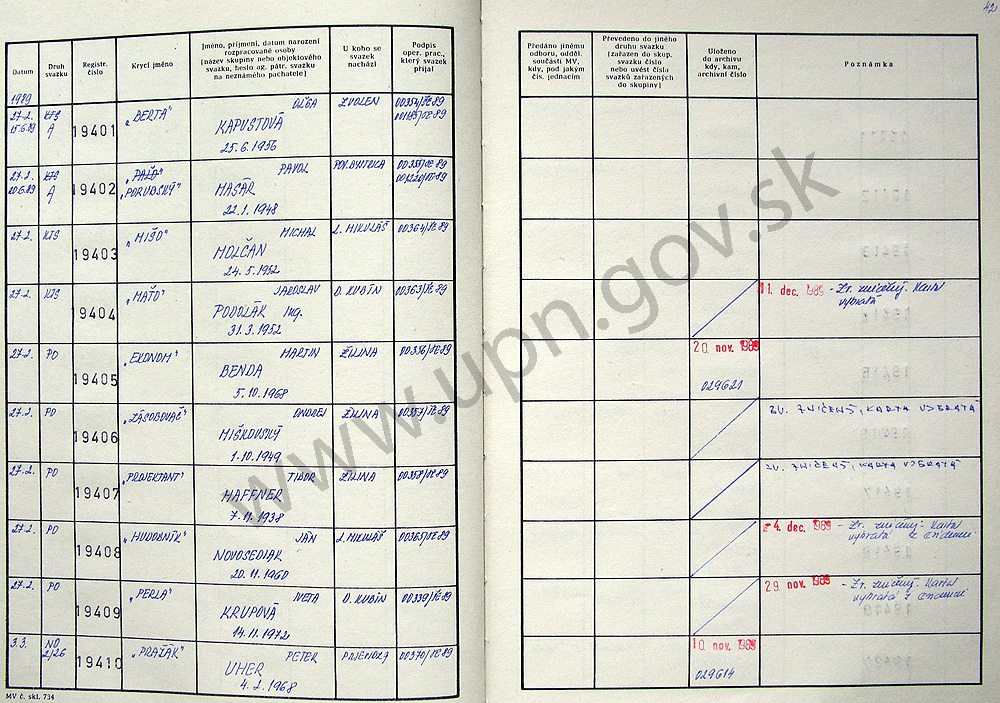 42
Datum
Druh svazku
Registr. číslo
Krycí jméno
Jméno, příjmení, datum narození
rozpracované osoby
(název skupiny nebo objektového
svazku, heslo ag. pátr. svazku
na neznámého pachatele)
U koho se
svazek
nachází
Podpis
oper. prac.,
který svazek
přijal
Předáno jinému
odboru, odděl.
součásti MV,
kdy, pod jakým
čís. jednacím
Převedeno do jiného
druhu svazku
(zařazen do skup.
svazku číslo
nebo uvést čísla
svazků zařazených
do skupiny)
Uloženo
do archivu
kdy, kam,
archivní číslo
Poznámka
1989
27.2. KTS 19401 „BERTA" OĽGA ZVOLEN 00354/ 89
15.6.89 A KAPUSTOVÁ
25.6.1956
27.2. KTS 19402 „PAĽO" PAVOL POV. BYSTRICA 00355/ 89
A MASÁR
22.1.1948
27.2. KTS 19403 „MIŠO" MICHAL L. MIKULÁŠ 00364/ 89
MOLČAN
24.5.1952
27.2. KTS 19404 „MAŤO" JAROSLAV D. KUBÍN 00363/ 89 11. dec. 1989 - Zv. zničený. Karta
PODOLÁK Ing. vybratá
31.3.1952
27.2. PO 19405 „EKONOM" MARTIN ŽILINA 00356/ 89 20. nov. 1989
BENDA 029621
5.10.1968
27.2. PO 19406 „ZÁSOBOVAČ" ONDREJ ŽILINA 00357/ 89 ZV. ZNIČENÝ, KARTA VYBRATÁ
MIŠKOVSKÝ
1.10.1949
27.2. PO 19407 „PROJEKTANT" TIBOR ŽILINA 00358/ 89 ZV. ZNIČENÝ, KARTA VYBRATÁ
HAFFNER
7.11.1938
27.2. PO 19408 „HUDOBNÍK" JÁN L. MIKULÁŠ 00365/ 89 4. dec. 1989 - Zv. zničený. Karta
NOVOSEDIAK vybratá z evidencie
20.11.1960
27.2. PO 19409 „PERLA" IVETA D. KUBÍN 00359/ 89 29. nov. 1989 - Zv. zničený. Karta
KRUPOVÁ vybratá z evidencie
14.11.1972
3.3. NO 19410 „PRAŽÁK" PETER PRIEVIDZA 00370/ 89 10. nov. 1989
2/26 UHER 029614
4.2.1968
MV č. skl. 734
www.upn.gov.sk